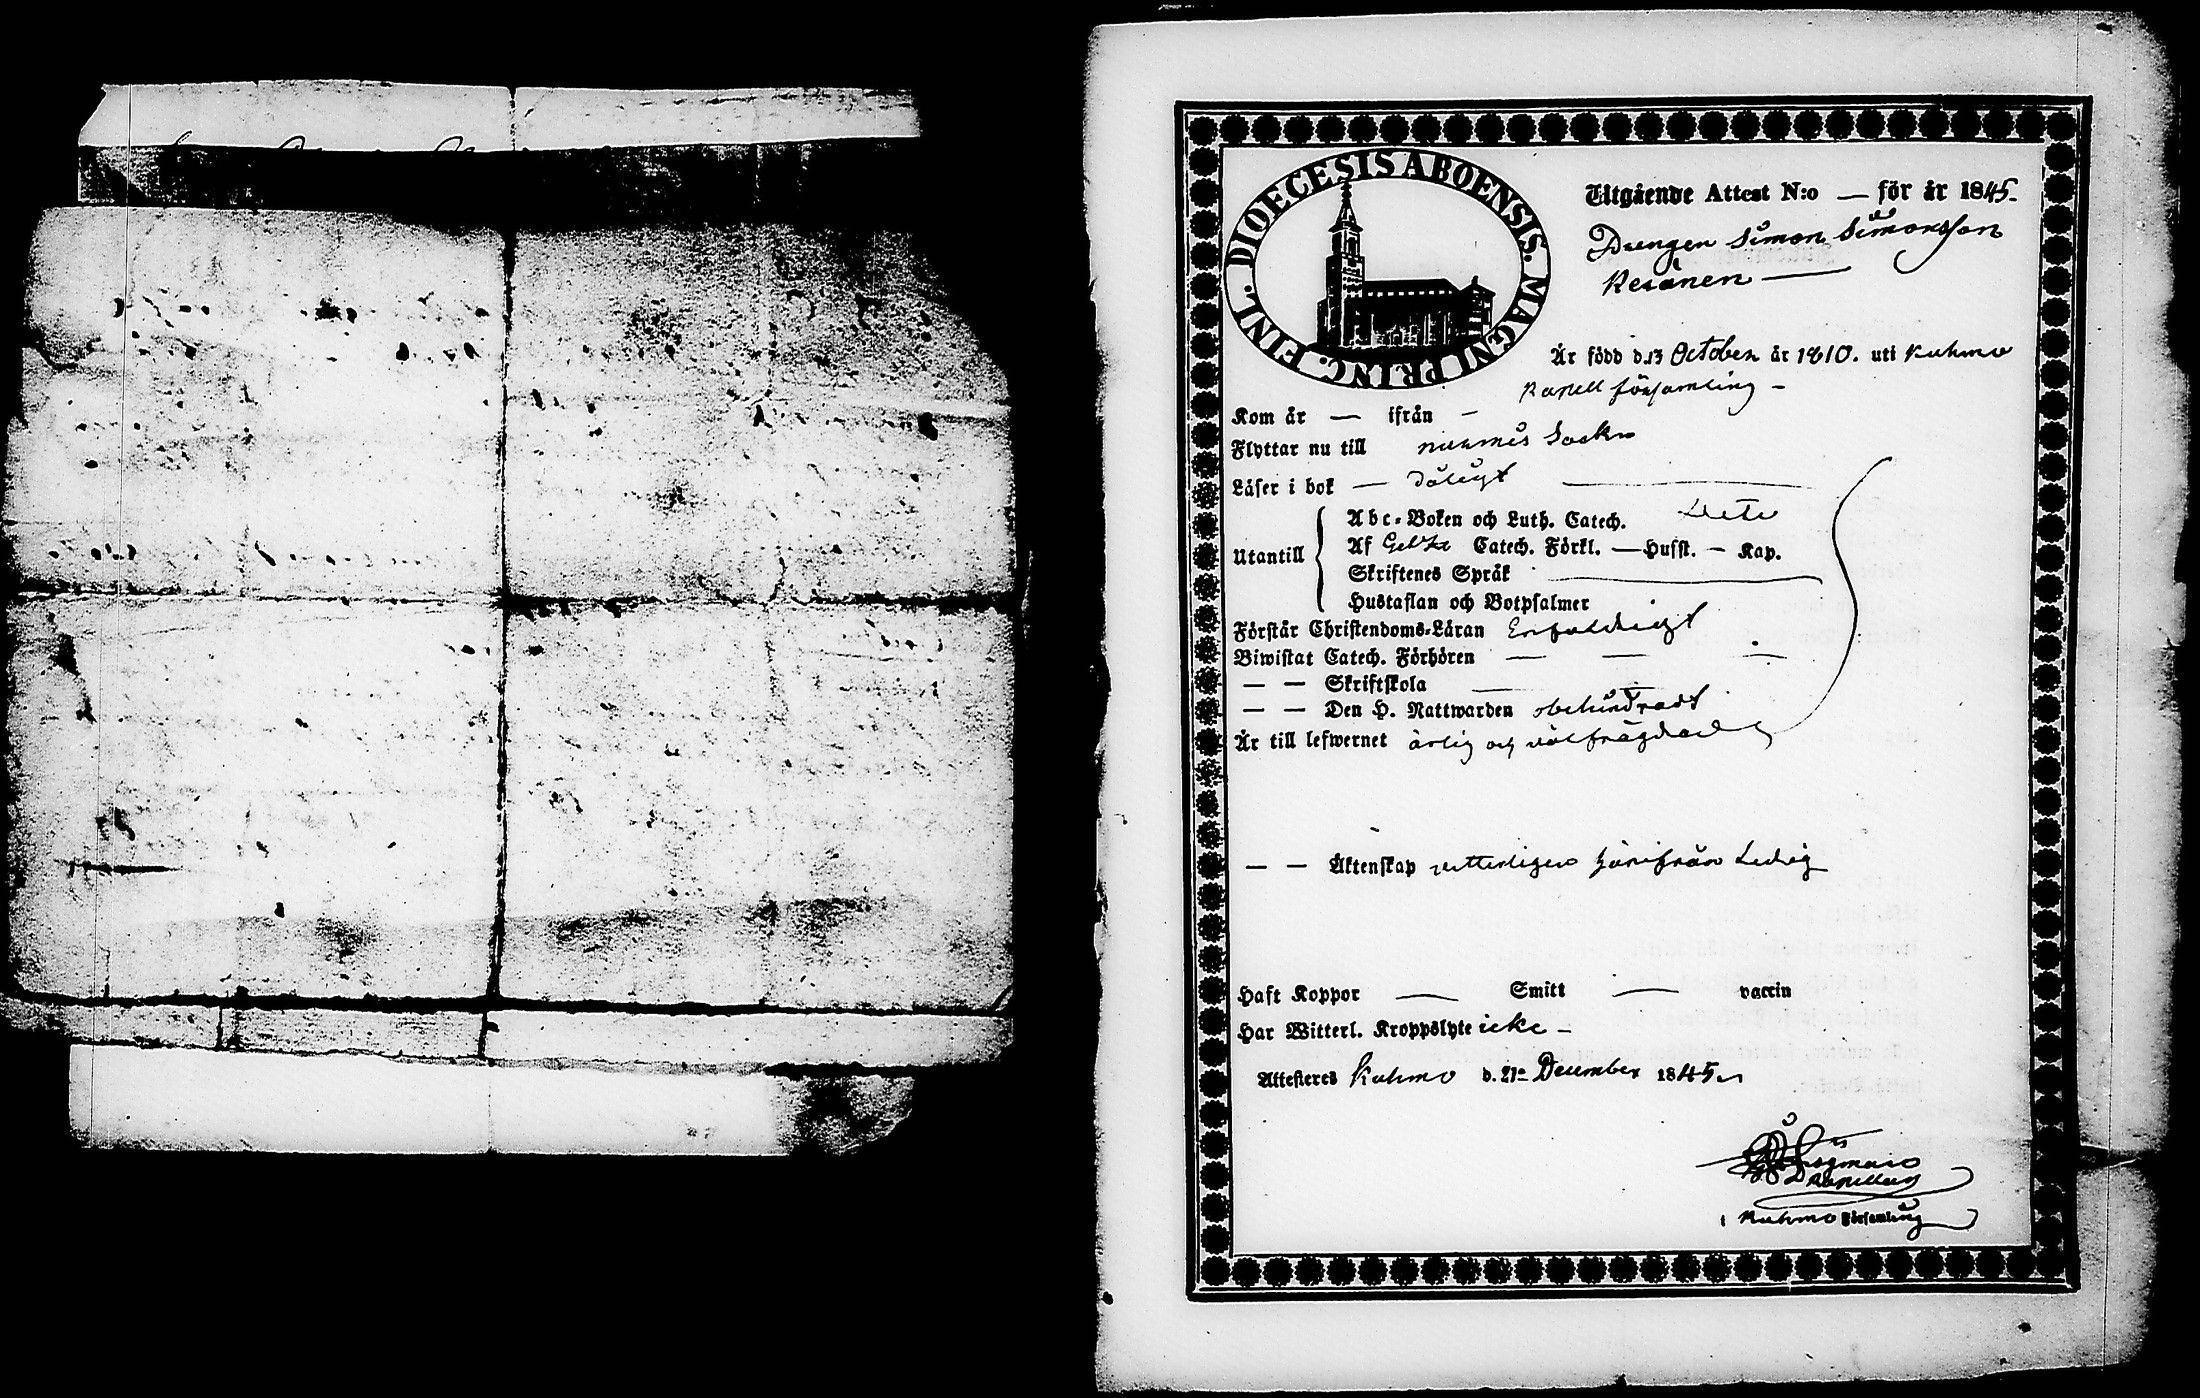 FINL. DIOECESIS ABOENSIS. MAGNI PRINC.
Utgående Attest N:o — för år 1845.
Drengen Simon Simonsson
Keränen —
Är född d. 13 October år 1810. uti Kuhmo
Kapell församling –
Kom år — ifrån –
Flyttar nu till Nurmis Sockn
Läser i bok — Dåligt —
Utantill
Abc-Boken och Luth. Catech. Dito
Af Catech. Förkl. — Husst. – Kap.
Skriftenes Språk —
Hustaflan och Botpsalmer
Förstår Christendoms-Läran Enfaldigt
Biwistat Catech. Förhören — — —
— — Skriftskola —
— — Den H. Nattwarden obehindradt
Är till lefwernet ärlig och välfrägdad
— — Äktenskap vetterligen härifrån Ledig
Haft Koppor — Smitt — vaccin
Har Witterl. Kroppslyte icke –
Attesteres Kuhmo d. 21 December 1845
Kapellan
i Kuhmo Församling